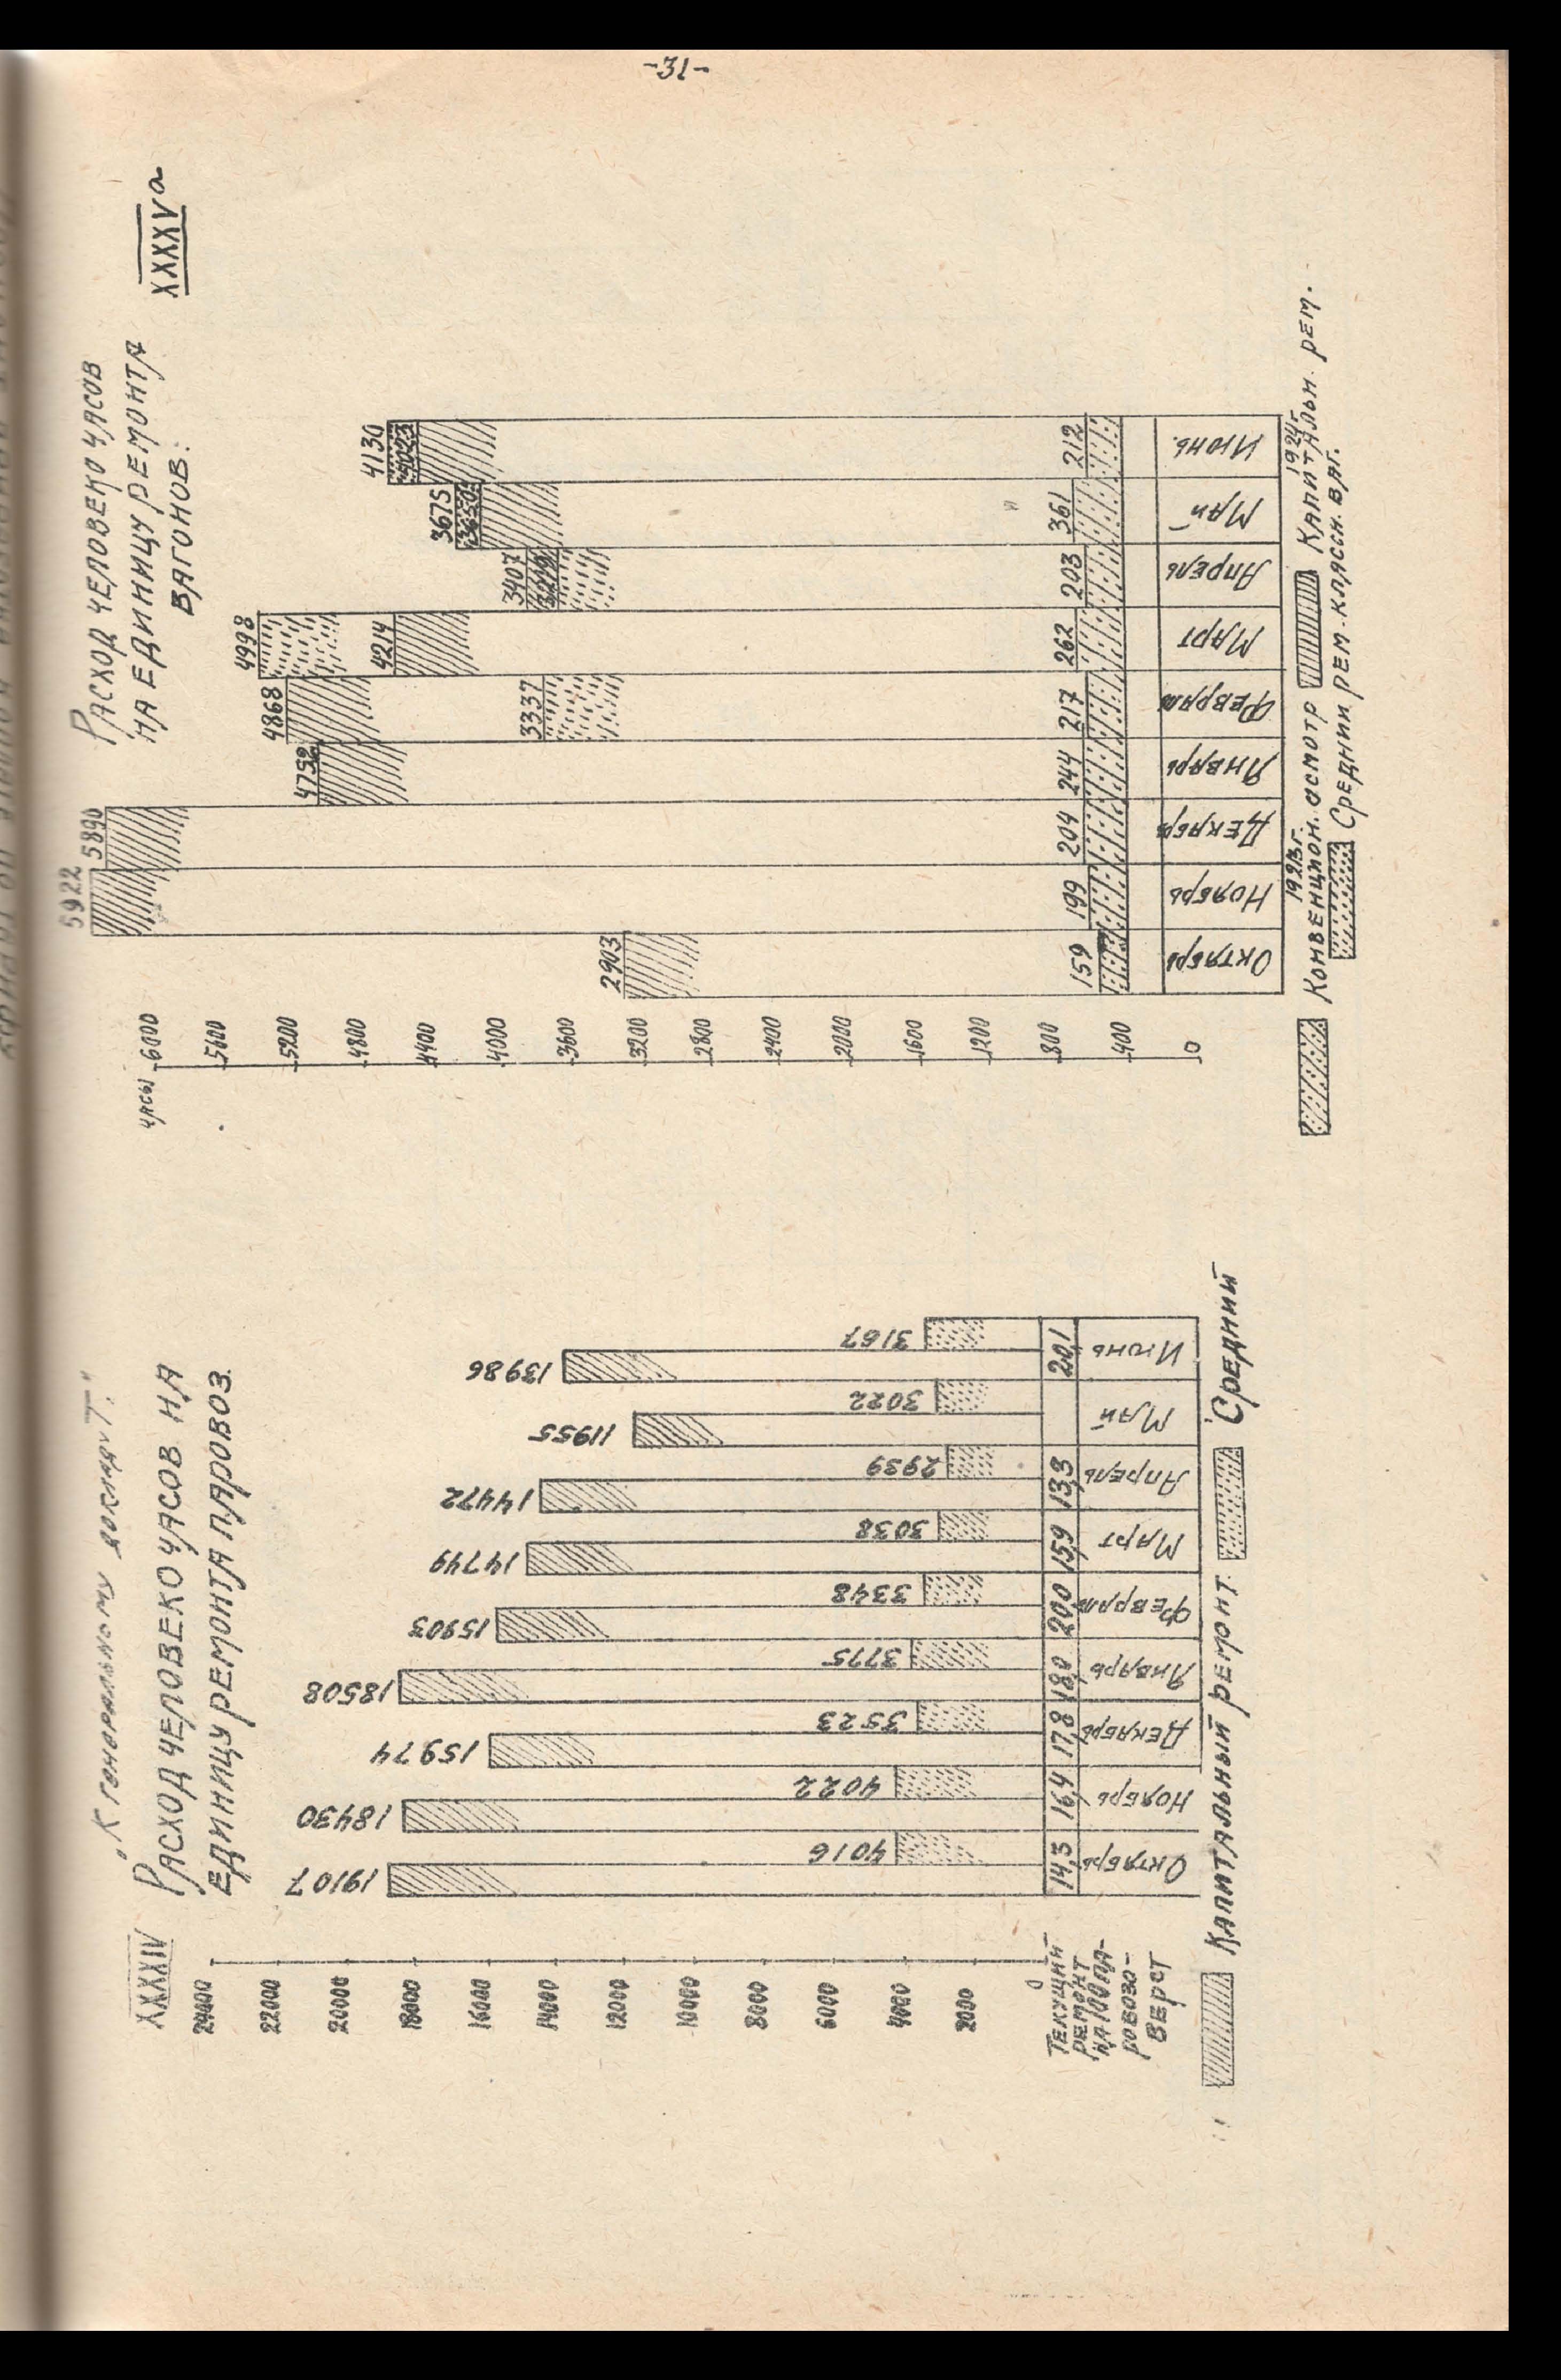 -31-
"К генеральному докладу Т."
XXXXIV
Расход человеко часов на
единицу ремонта паровоз.
24000
22000
20000
18000
16000
14000
12000
10000
8000
6000
4000
2000
0
19107
4016
18430
4022
15974
3523
18508
3775
15903
3348
14749
3038
14472
2939
11955
3022
13986
3167
Текущий
ремонт
на 100 па-
ровозо-
верст
14,3
16,4
17,8
18,0
20,0
15,9
13,3
20,1
Октябрь
Ноябрь
Декабрь
Январь
Феврал
Март
Апрель
Май
Июнь
Капитальный ремонт. Средний
Расход человеко часов
на единицу ремонта
вагонов.
XXXXV а
часы
6000
5600
5200
4800
4400
4000
3600
3200
2800
2400
2000
1600
1200
800
400
0
2903
5922
5890
4752
4868
3337
4998
4214
3407
3219
3675
3650
4130
4023
159
199
204
244
217
262
203
361
212
Октябрь
Ноябрь
Декабрь
Январь
Феврал
Март
Апрель
Май
Июнь.
1923г.
1924г.
Конвенцион. осмотр Капитальн. рем.
Средний рем. классн. ваг.